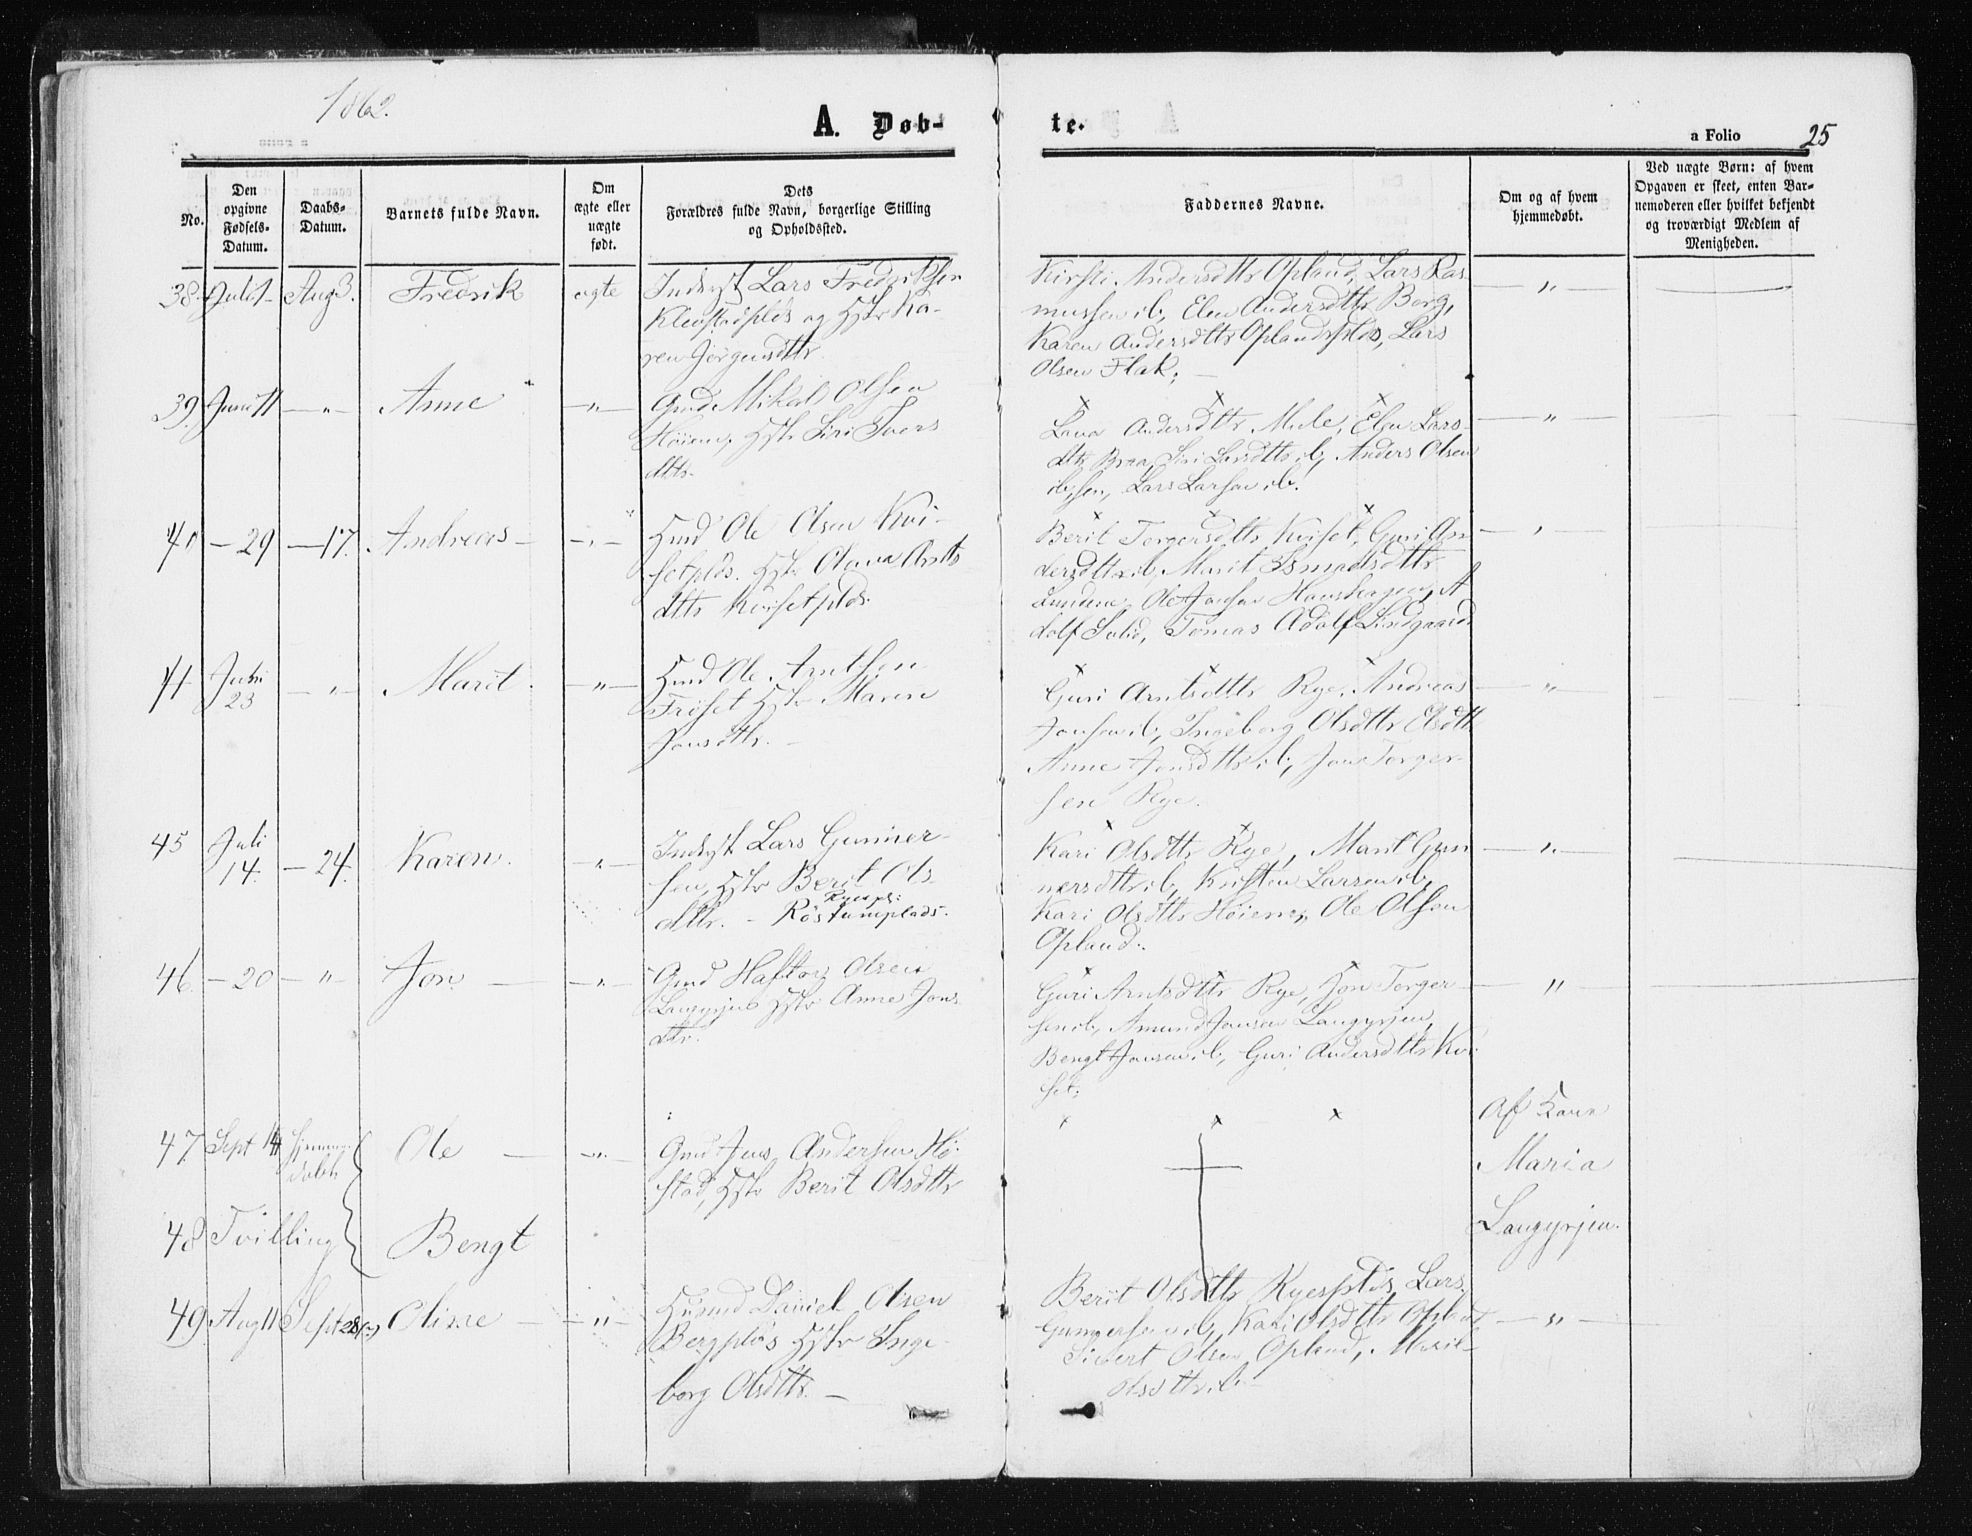 1862.
A. Døb-
te.
a Folio 25
No.
Den opgivne Fødsels-Datum.
Daabs-Datum.
Barnets fulde Navn.
Om ægte eller uægte født.
Dets Forældres fulde Navn, borgerlige Stilling og Opholdssted.
Faddernes Navne.
Om og af hvem hjemmedøbt.
Ved uægte Børn: af hvem Opgaven er skeet, enten Barnemoderen eller hvilket bekjendt og troværdigt Medlem af Menigheden.
38. Juli 1 Aug 3. Fredrik ægte
Indsyst Lars Fredriksen
og Hstr Ka-
ren Jørgensdttr.
Kirsti Andersdttr Opland, Lars Ras
mussen ib, Elen Andersdttr Berg,
Karen Andersdttr Oplandsplds, Lars
Olsen Flak;
— „ —
39. Juni 11 — „ — Anne — „ —
Gmd Mikal Olsen
Høiem, Hstr Siri Ivers
dttr.
Andersdttr Mule, Elen Lars-
dttr Braa, Siri Larsdttr ib, Anders Olsen
Lars Larsen ib.
— „ —
— 29 — 17. Andreas — „ —
Hmd Ole Olsen Kvi-
setplds. Hstr Olava Arnts
dttr Kvisetplds.
Berit Torgersdttr Kviset, Guri An
dersdttr ib, Marit
Ole Jonsen A
dolf Tomas Adolf Lindgaard.
41 Juni 23 — „ — Marit. — „ —
Hmd Ole Arntsen
Frøset Hstr Maren
Jonsdttr. —
Guri Arntsdttr Rye, Andreas
Jonsen ib, Ingeborg Olsdttr
Anne Jonsdttr ib, Jon Torger-
sen Rye.
— „ —
45 Juli 14. — 24. Karen. „ —
Indsyst Lars Gunner-
sen, Hstr Berit Ols
Ryespl:
dttr. — Røstumplads.
Kari Olsdttr Rye, Marit Gun
nersdttr ib, Kristen Larsen ib,
Kari Olsdttr Høiem, Ole Olsen
Opland.
— „ —
46. — 20 — „ — Jon — „ —
Gmd Haftor Olsen
Langørjen Hstr Anne Jons
dttr.
Guri Arntsdttr Rye, Jon Torger
sen ib, Amund Jonsen Langørjen,
Bengt Jonsen ib, Guri Andersdttr Kvi
set;
— „ —
47. Sept 14 Hjemme-
døbt Ole — „ —
Gmd Jens Andersen Hø-
stad, Hstr Berit Olsdttr
Af Karen
Maria
Langørjen.
48 Tvilling Bengt
49. Aug 11 Sept 28 Oline — „ —
Husmd Daniel Olsen
Bergplds Hstr Inge-
borg Olsdttr. —
Berit Olsdttr Ryesplds, Lars
Gunnersen ib, Kari Olsdttr Opland
Sivert Olsen Opland, Marit
Olsdttr ib
— „ —